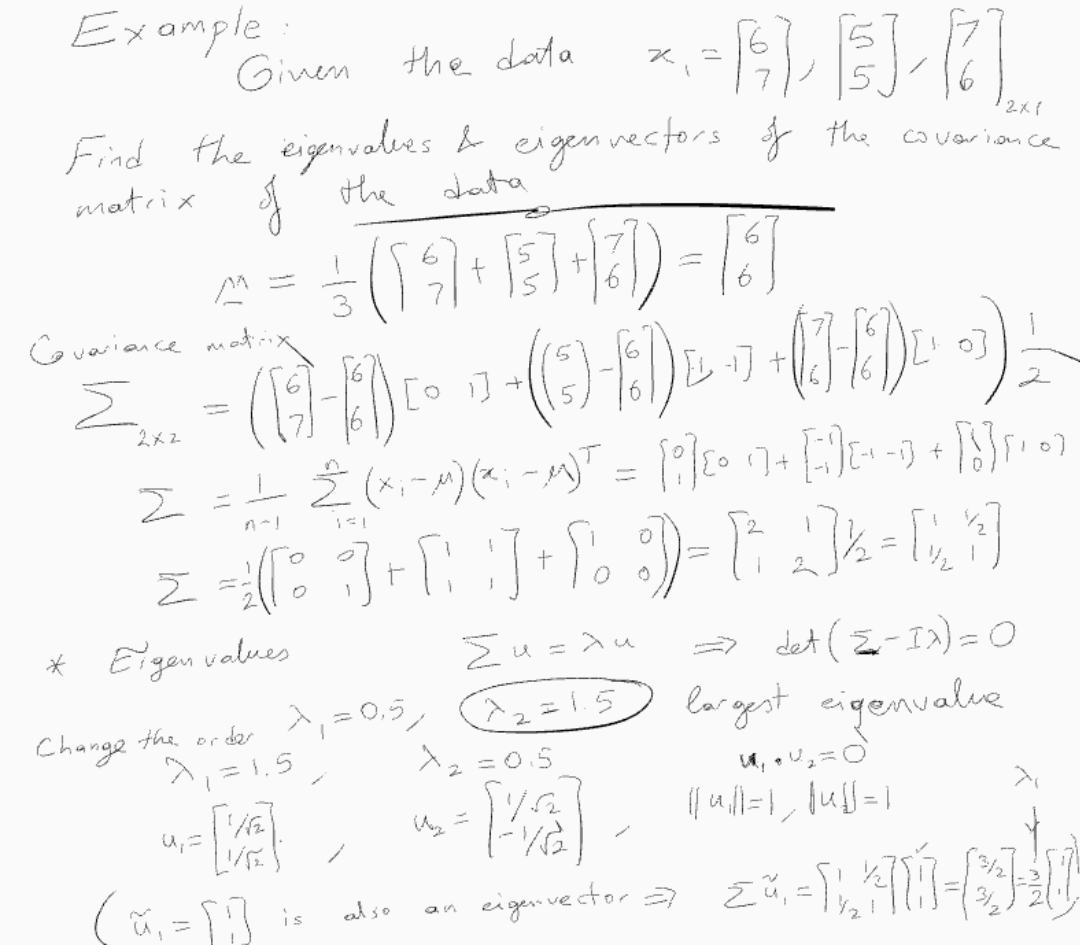 Example:
Given the data x₁ = [6; 7], [5; 5], [7; 6] 2x1
Find the eigenvalues & eigenvectors of the covariance
matrix of the data
m = 1/3 ([6; 7] + [5; 5] + [7; 6]) = [6; 6]
Covariance matrix
Σ 2x2 = (([6; 7] - [6; 6]) [0 1] + ((5; 5) - [6; 6]) [-1 -1] + ([7; 6] - [6; 6]) [1 0]) 1/2
Σ = 1/(n-1) Σ i=1 n (xᵢ - μ)(xᵢ - μ)ᵀ = [0; 1] [0 1] + [-1; -1] [-1 -1] + [1; 0] [1 0]
Σ = 1/2 ([0 0; 0 1] + [1 1; 1 1] + [1 0; 0 0]) = [2 1; 1 2] 1/2 = [1 1/2; 1/2 1]
* Eigenvalues Σu = λu ⇒ det(Σ - Iλ) = 0
λ₁ = 0.5, λ₂ = 1.5 largest eigenvalue
Change the order
λ₁ = 1.5, λ₂ = 0.5 u₁ • u₂ = 0
u₁ = [1/√2; 1/√2], u₂ = [1/√2; -1/√2], ||u₁|| = 1, ||u|| = 1 λ₁
(ũ₁ = [1; 1] is also an eigenvector ⇒ Σũ₁ = [1 1/2; 1/2 1] [1; 1] = [3/2; 3/2] = 3/2 [1; 1])